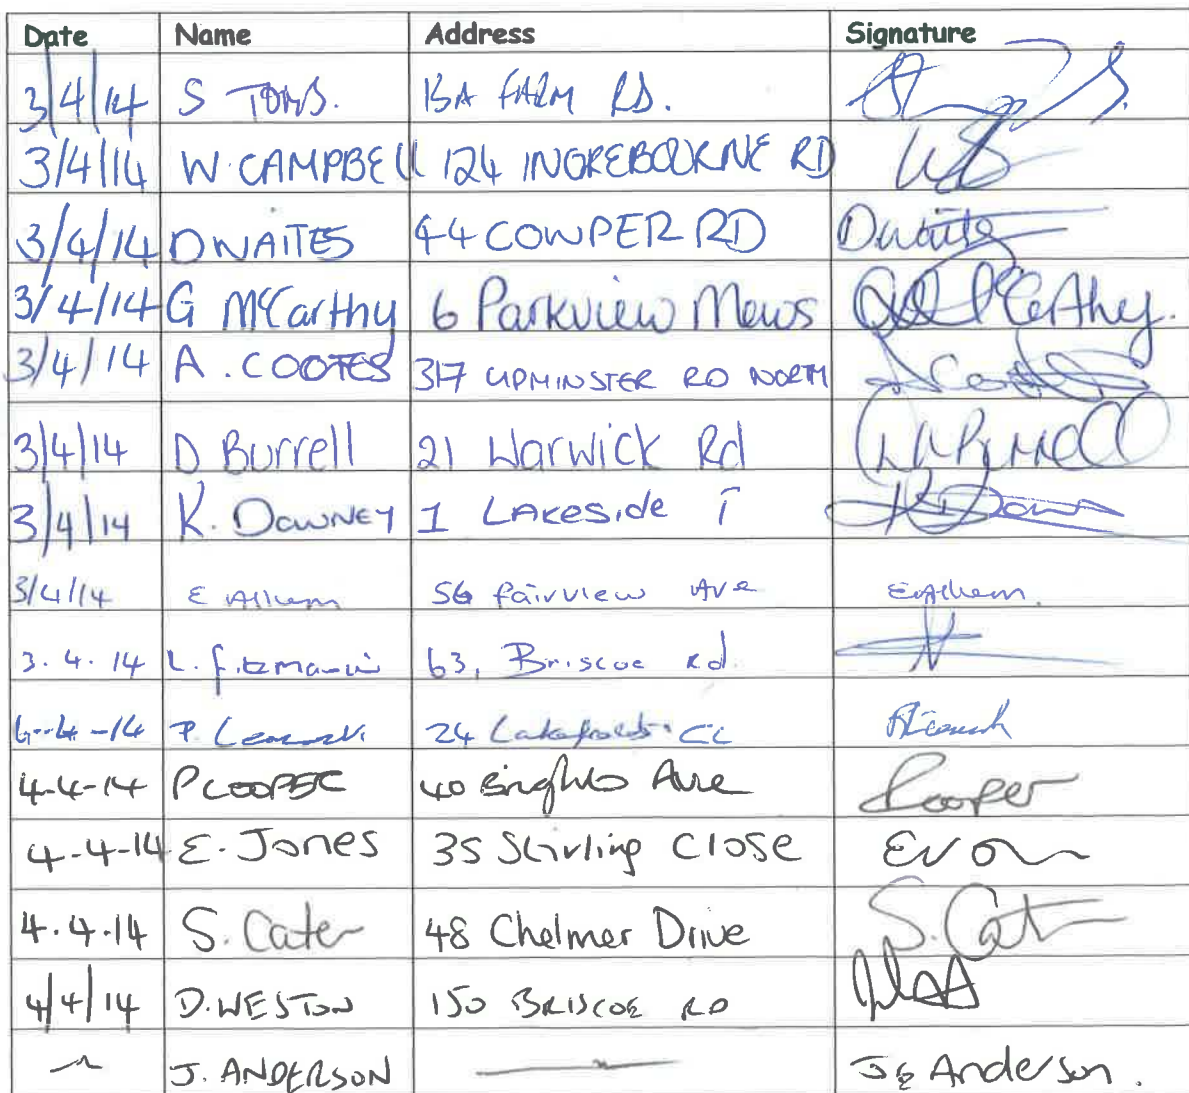 Date Name Address Signature
3/4/14 S TOMS. 13A FARM RD.
3/4/14 W. CAMPBELL 124 INGREBOURNE RD
3/4/14 D WAITES 44 COWPER RD Dwaites
3/4/14 G McCarthy 6 Parkview Mews McCarthy.
3/4/14 A. COOTES 317 UPMINSTER RD NORTH
3/4/14 D Burrell 21 Warwick Rd
3/4/14 K. DOWNEY 1 LAKESIDE
3/4/14 E 56 fairview Ave
3.4.14 L. 63, Briscoe Rd.
4-14 P. 24 CL
4-4-14 P COOPER 40 Ave Cooper
4-4-14 E. Jones 35 Stirling Close
4.4.14 S. Cater 48 Chelmer Drive S. Cater
4/4/14 D. WESTON 150 BRISCOE RD
J. ANDERSON Anderson.